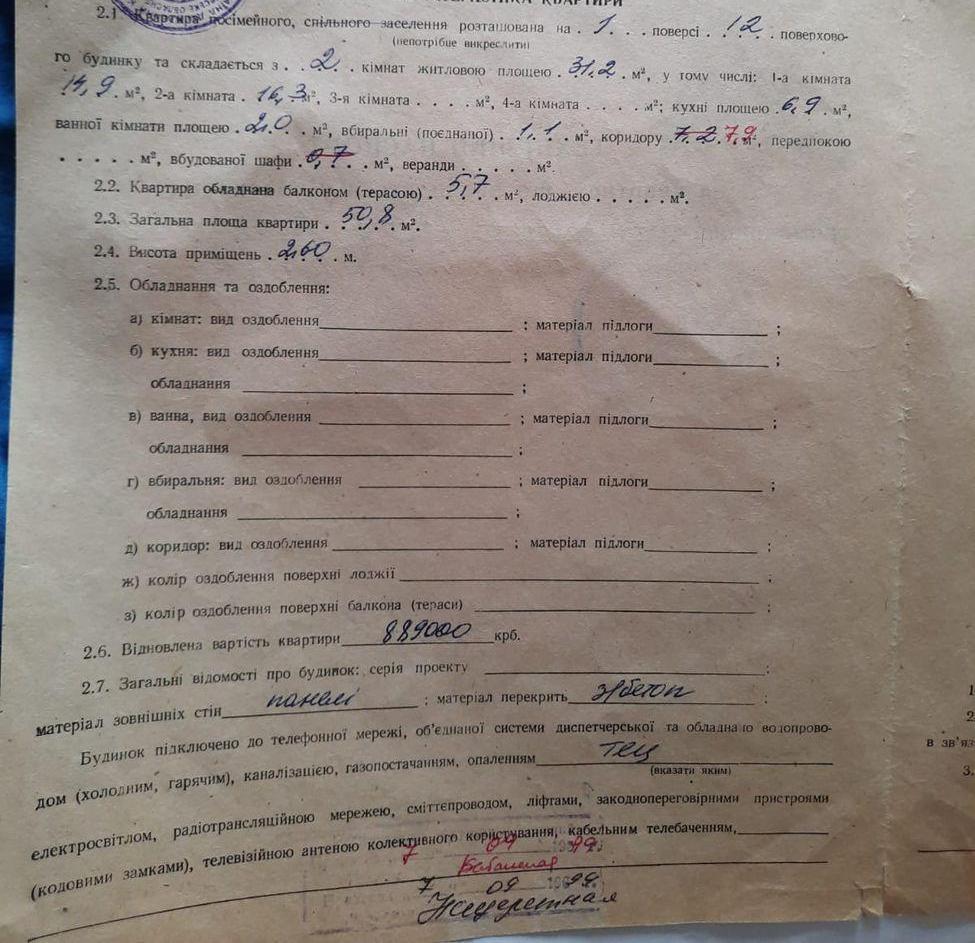 КВАРТИРИ
2.1 Квартира посімейного, спільного заселення розташована на . 1. . . поверсі . 12. . поверхово-
(непотрібне викреслити)
го будинку та складається з . . 2. . кімнат житловою площею . 31.2 . м², у тому числі: 1-а кімната
14,9 . м², 2-а кімната . 16,3 м², 3-я кімната . . . . м², 4-а кімната . . . . м²; кухні площею . 6,9 . м²,
ванної кімнати площею . 2.0 . . м², вбиральні (поєднаної) . 1.1 . . м², коридору . 7.2 7,9 м², передпокою
. . . . . м², вбудованої шафи . 0,7 . . м², веранди . . . . . м².
2.2. Квартира обладнана балконом (терасою) . 5,7 . . м², лоджією . . . . . м².
2.3. Загальна площа квартири . 50,8 . м².
2.4. Висота приміщень . 2,60 . м.
2.5. Обладнання та оздоблення:
а) кімнат: вид оздоблення ; матеріал підлоги ;
б) кухня: вид оздоблення ; матеріал підлоги ;
обладнання ;
в) ванна, вид оздоблення ; матеріал підлоги ;
обладнання ;
г) вбиральня: вид оздоблення ; матеріал підлоги ;
обладнання ;
д) коридор: вид оздоблення ; матеріал підлоги ;
ж) колір оздоблення поверхні лоджії ;
з) колір оздоблення поверхні балкона (тераси) ;
2.6. Відновлена вартість квартири 889000 крб.
2.7. Загальні відомості про будинок: серія проекту ;
матеріал зовнішніх стін панелі ; матеріал перекрить з/бетон ;
Будинок підключено до телефонної мережі, об'єднаної системи диспетчерської та обладнано водопрово-
дом (холодним, гарячим), каналізацією, газопостачанням, опаленням ТЕЦ
(вказати яким)
електросвітлом, радіотрансляційною мережею, сміттєпроводом, ліфтами, закоднопереговірними пристроями
(кодовими замками), телевізійною антеною колективного користування, кабельним телебаченням,
7 09 99
7 09 1999
1
2
в зв'яз
3.